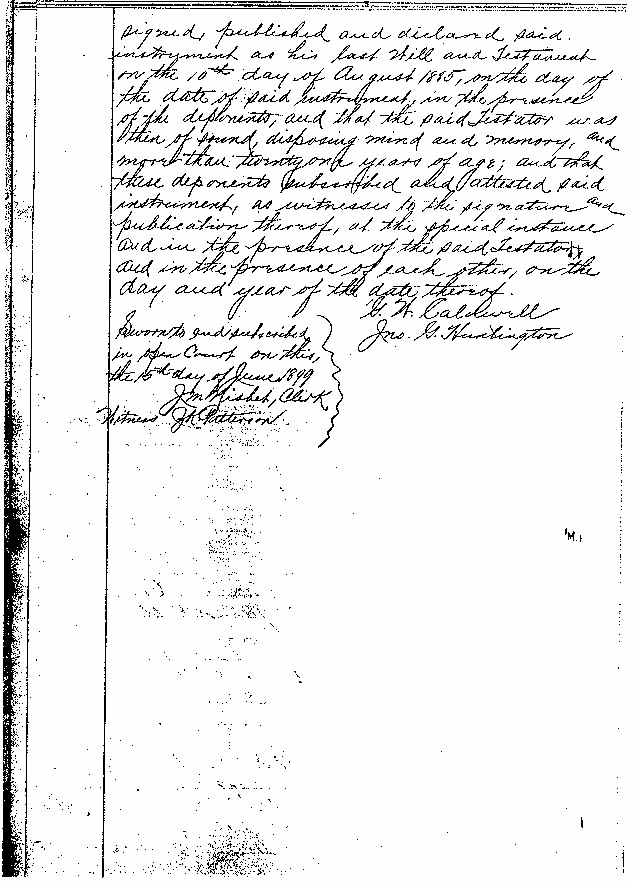 signed, published and declared said
instrument as his last Will and Testament
on the 10th day of August 1885, on the day of
the date of said instrument, in the presence
of the deponents, and that the said Testator was
then of sound, disposing mind and memory, and
more than twenty one years of age; and that
these deponents subscribed and attested said
instrument, as witnesses to the signature and
publication thereof, at the special instance
and in the presence of the said Testator,
and in the presence of each other, on the
day and year of the date thereof.
G. W. Caldwell
Jno. G. Huntington
Sworn to and subscribed
in open Court on this,
the 15th day of June 1899
J M Nisbet, Clerk
Witness J K Patterson.